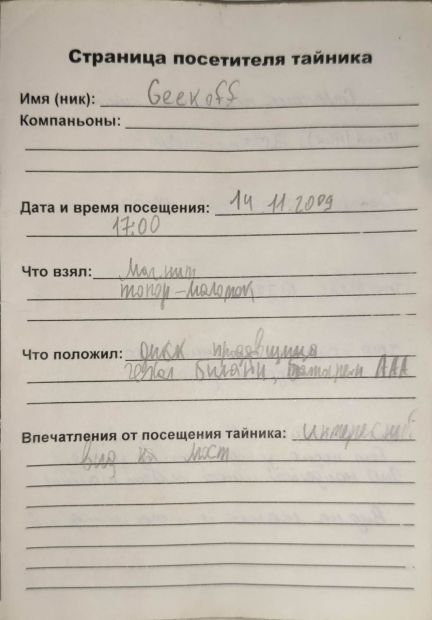 Страница посетителя тайника
Имя (ник): Geekoff
Компаньоны:
Дата и время посещения: 14 11.2009
17:00
Что взял: Магнит
топор-молоток
Что положил: диск
батареи ААА
Впечатления от посещения тайника: интересный
вид на мост